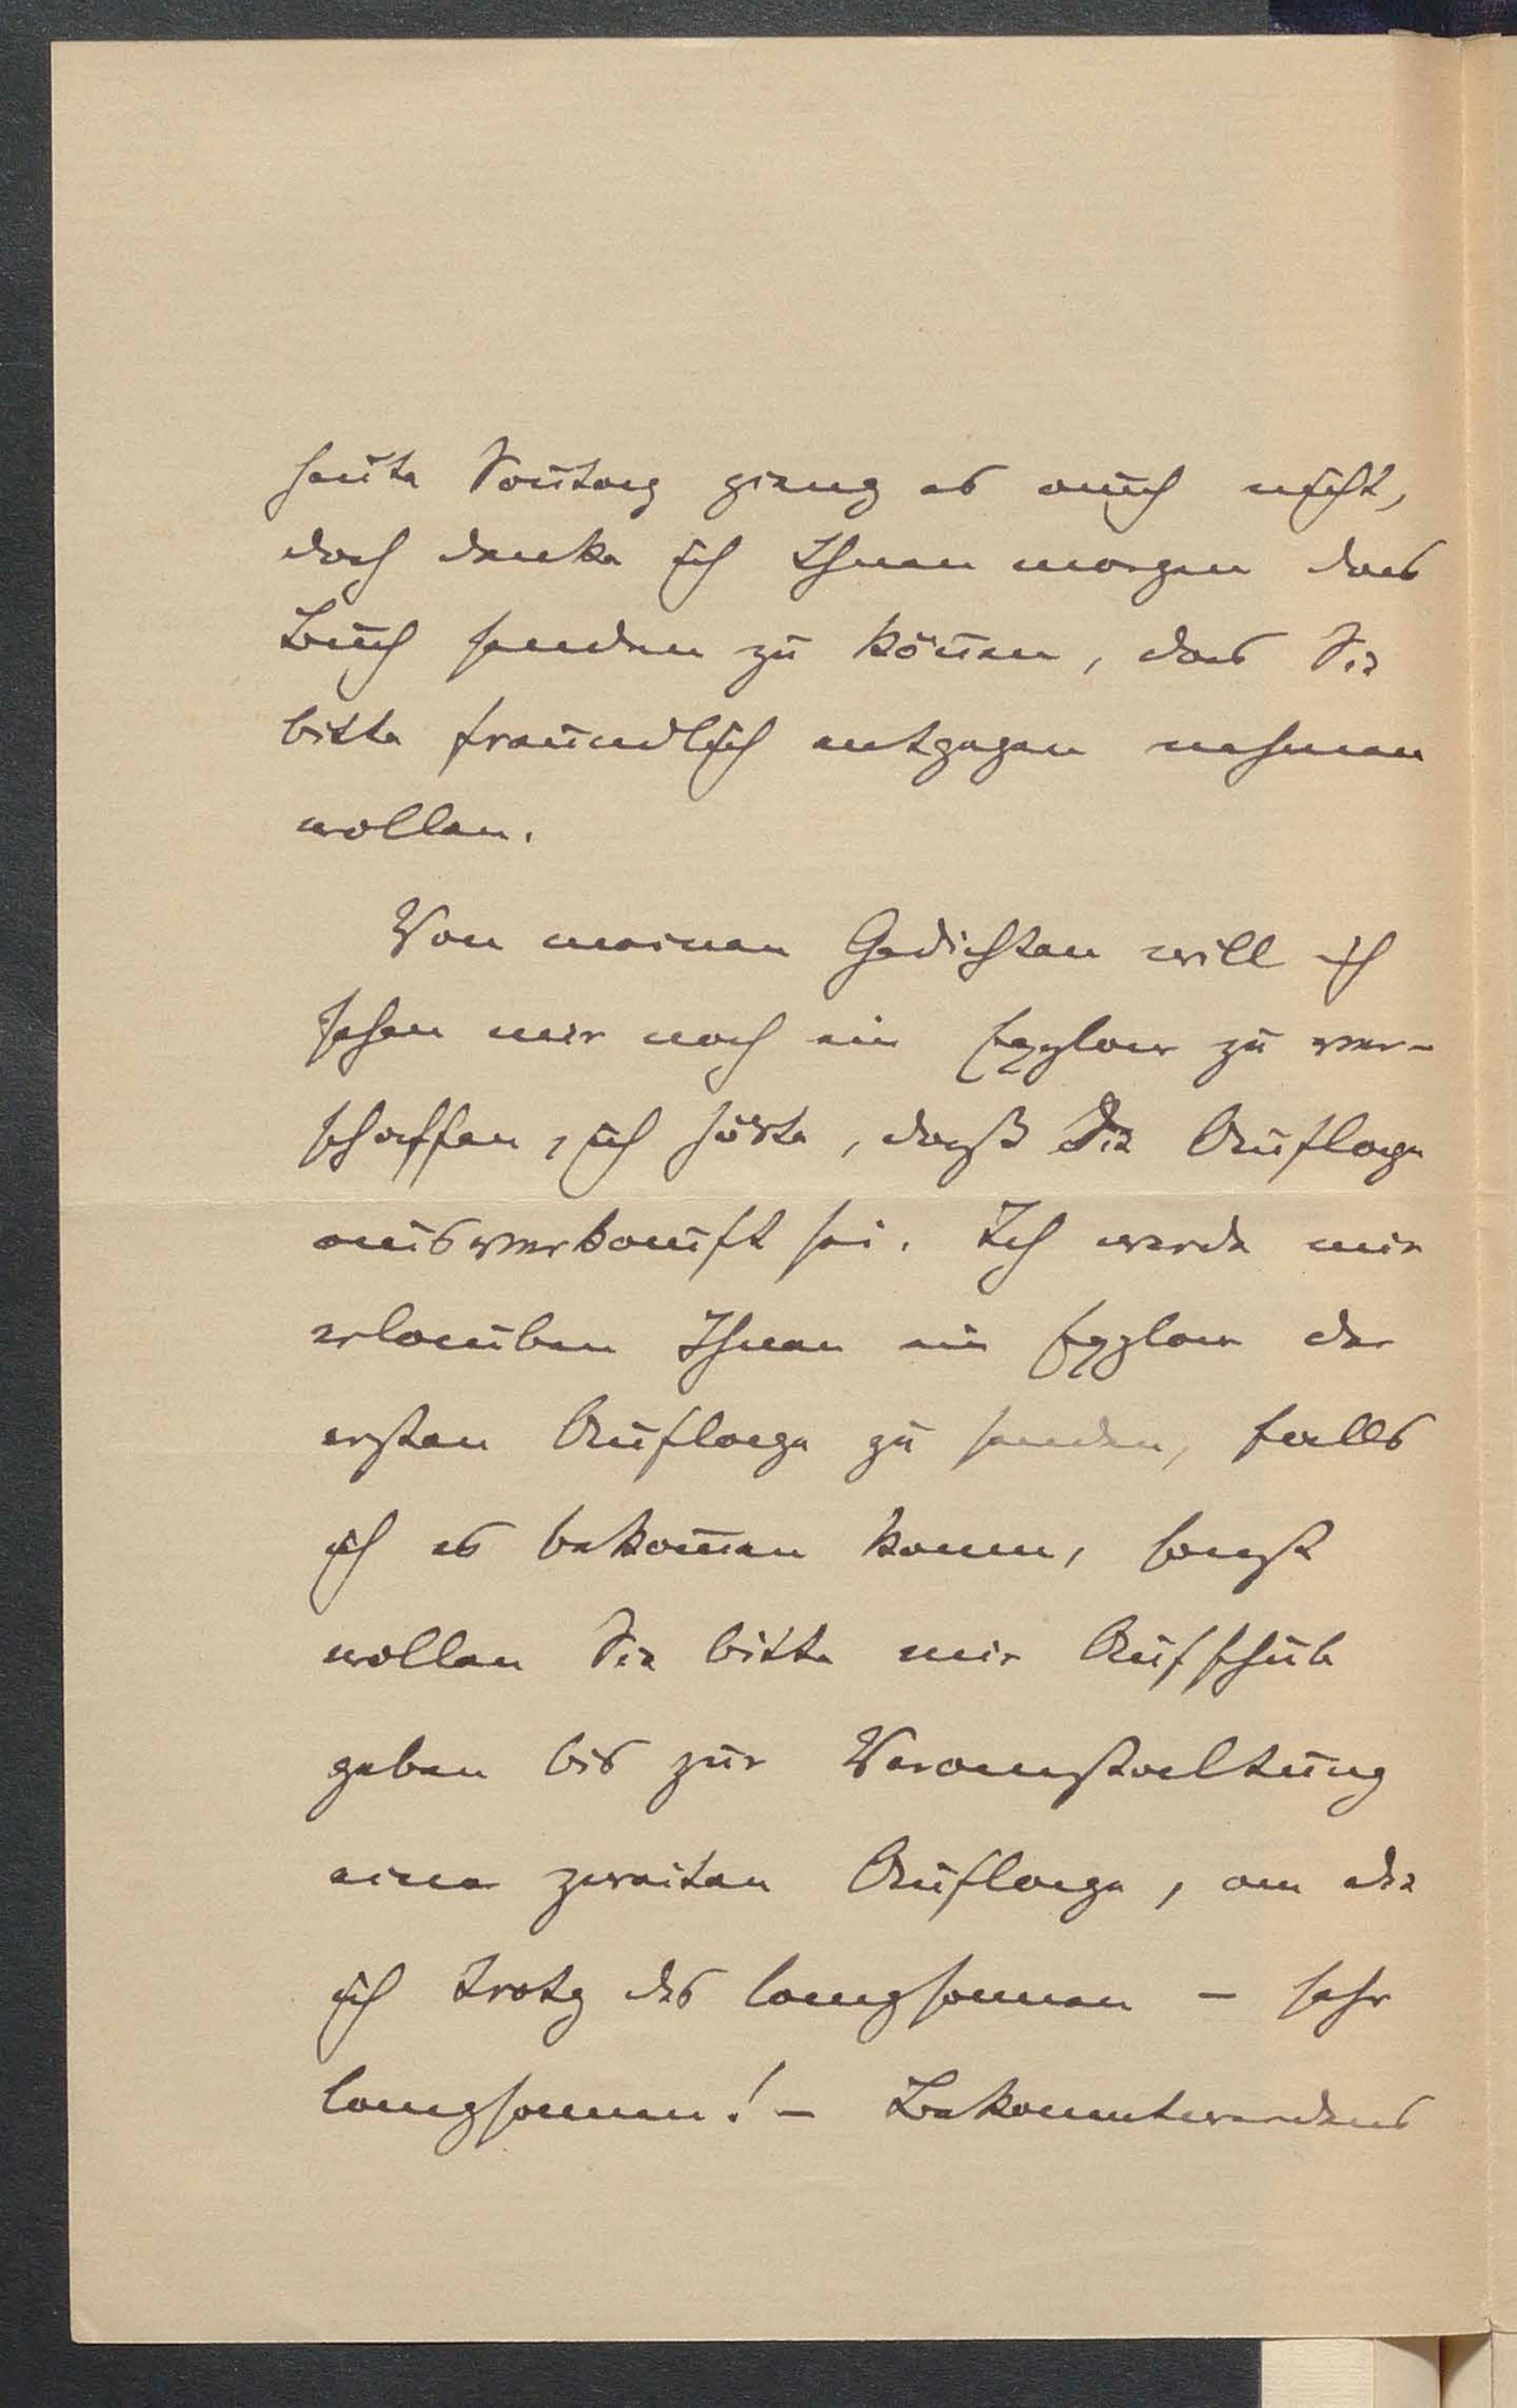 heute Sontag gieng es auch nicht,
doch denke ich Ihnen morgen das
Buch senden zu können, das Sie
bitte freundlich entgegen nehmen
wollen.
Von meinen Gedichten will ich
sehen mir noch ein Explar zu ver-
schaffen, ich hörte, daß die Auflage
ausverkauft sei. Ich werde mir
erlauben Ihnen ein Explar der
ersten Auflage zu senden, falls
ich es bekommen kann, sonst
wollen Sie bitte mir Aufschub
geben bis zur Veranstaltung
einer zweiten Auflage, an die
ich trotz des langsamen – sehr
langsamen! – Bekanntwerdens